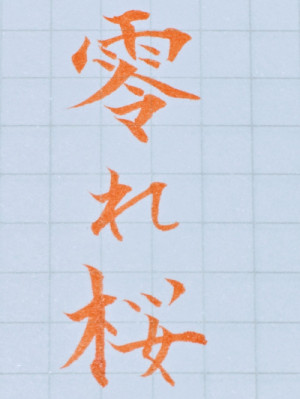 零れ桜